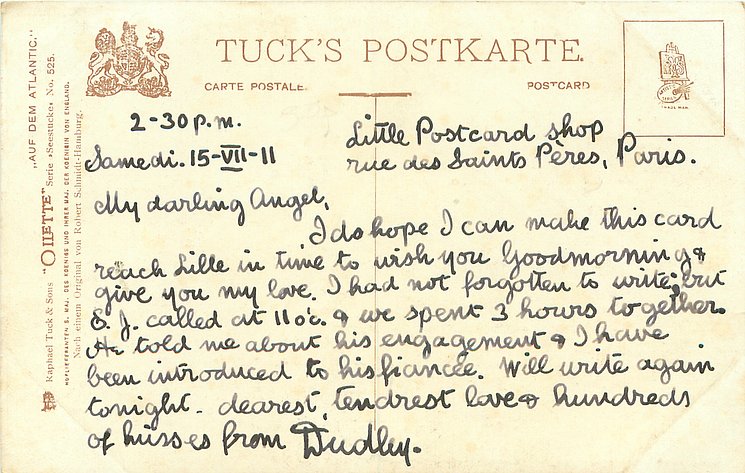 TUCK'S POSTKARTE.
CARTE POSTALE.
POSTCARD
TRADE MARK
„AUF DEM ATLANTIC."
Raphael Tuck & Sons "OILETTE" Serie »Seestücke« No. 525.
HOFLIEFERANTEN S. MAJ. DES KOENIGS UND IHRER MAJ. DER KOENIGIN VON ENGLAND.
Nach einem Original von Robert Schmidt-Hamburg.
2-30 p.m.
Samedi. 15-VII-11
Little Postcard shop
rue des Saints Pères, Paris.
My darling Angel,
I do hope I can make this card
reach Lille in time to wish you Goodmorning &
give you my love. I had not forgotten to write; but
S. J. called at 11 o'c. & we spent 3 hours together.
He told me about his engagement & I have
been introduced to his fiancée. Will write again
tonight - dearest, tendrest love & hundreds
of kisses from Dudley.